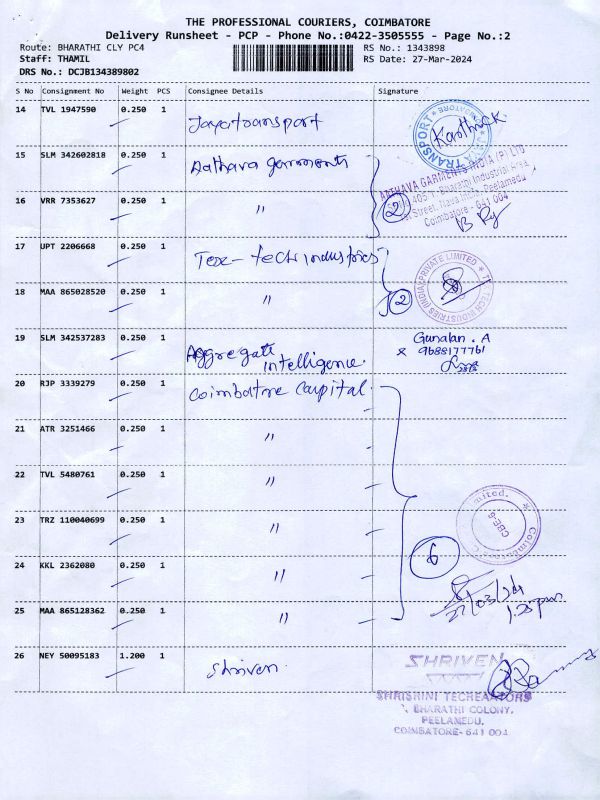 THE PROFESSIONAL COURIERS, COIMBATORE
Delivery Runsheet - PCP - Phone No.:0422-3505555 - Page No.:2
Route: BHARATHI CLY PC4
RS No.: 1343898
Staff: THAMIL
RS Date: 27-Mar-2024
DRS No.: DCJB134389802
S No Consignment No Weight PCS Consignee Details Signature
14 TVL 1947590 0.250 1 Jayatransport Karthick
TRANSPORT
15 SLM 342602818 0.250 1 Aathava garments
AATHAVA GARMENTS INDIA (P) LTD
405/1, Bharathi Industrial Area
Street, Nava India, Peelamedu
Coimbatore - 641 004
16 VRR 7353627 0.250 1 " 2
17 UPT 2206668 0.250 1 Tex-tech industries
TECH INDUSTRIES (INDIA) PRIVATE LIMITED
18 MAA 865028520 0.250 1 " 2
19 SLM 342537283 0.250 1 Aggregate intelligence. Gunalan . A
9688177761
20 RJP 3339279 0.250 1 Coimbatore Capital.
21 ATR 3251466 0.250 1 "
22 TVL 5480761 0.250 1 "
23 TRZ 110040699 0.250 1 "
mited.
CBE-6
Coimbatore
24 KKL 2362080 0.250 1 " 6
25 MAA 865128362 0.250 1 "
27/03/24
1.25pm
26 NEY 50095183 1.200 1 Shriven.
SHRIVEN
SHRISRINI TECREATORS
BHARATHI COLONY,
PEELAMEDU,
COIMBATORE- 641 004